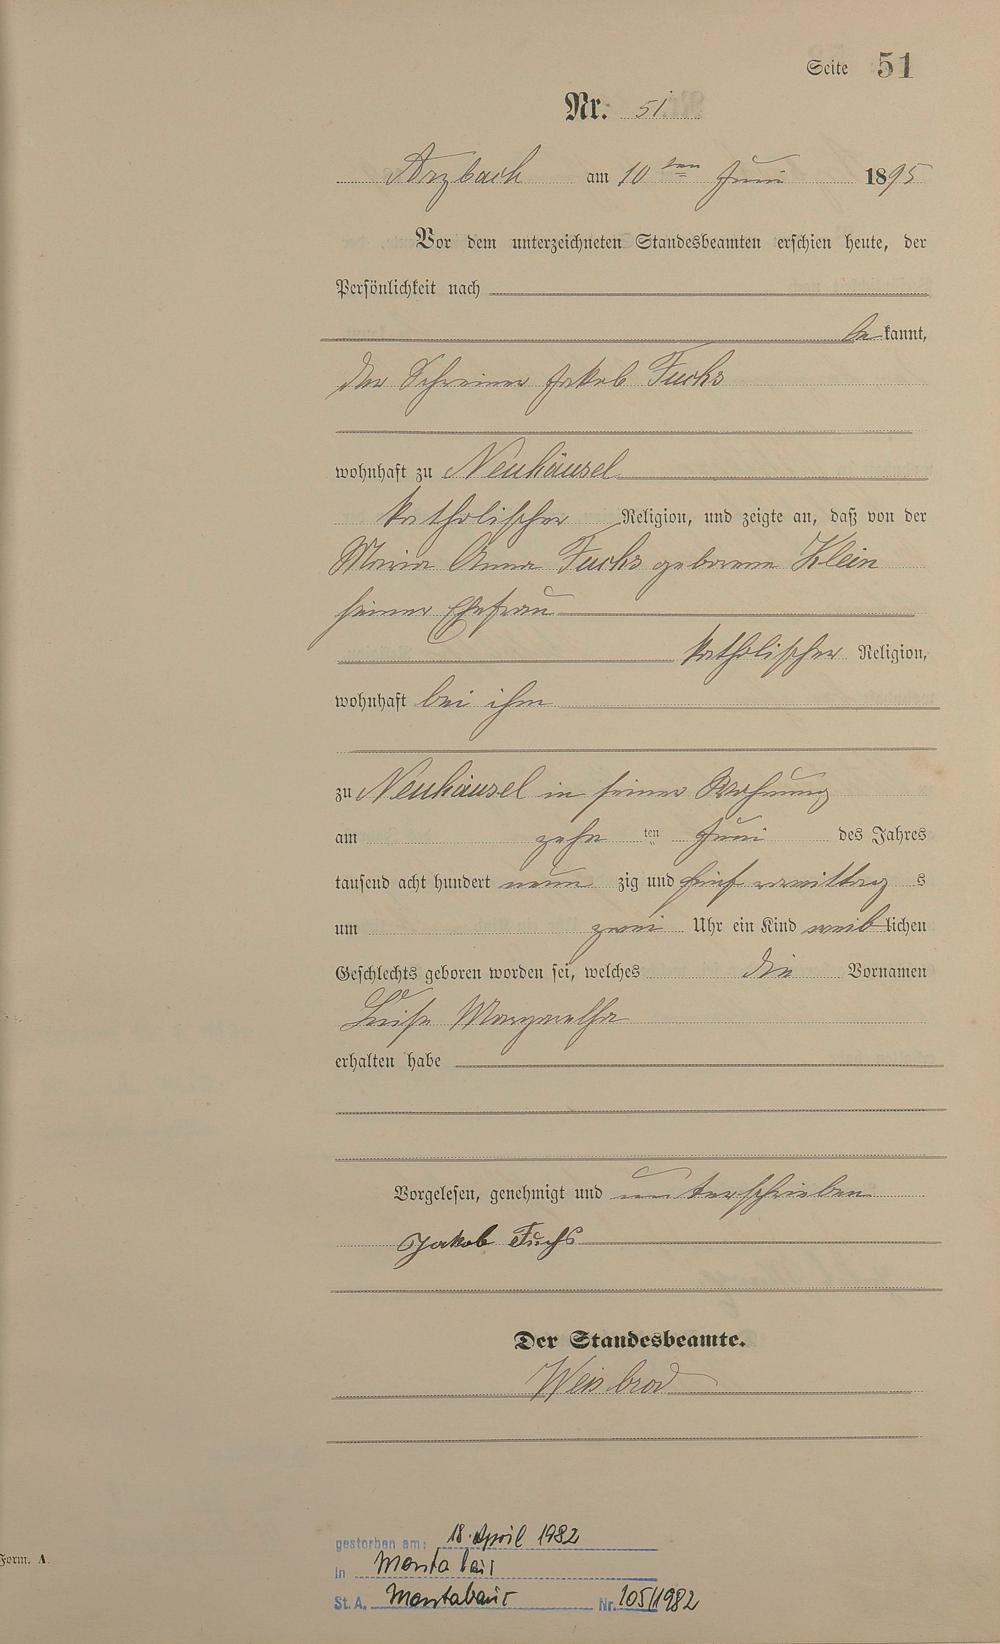 Seite 51
Nr. 51.
Arzbach am 10ten Juni 1895
Vor dem unterzeichneten Standesbeamten erschien heute, der
Persönlichkeit nach
be kannt,
der Schreiner Jakob Fuchs
wohnhaft zu Neuhäusel
katholischer Religion, und zeigte an, daß von der
Maria Anna Fuchs geborene Klein
seiner Ehefrau
katholischer Religion,
wohnhaft bei ihm
zu Neuhäusel in seiner Wohnung
am zehn ten Juni des Jahres
tausend acht hundert neun zig und fünf vormittag s
um zwei Uhr ein Kind weib lichen
Geschlechts geboren worden sei, welches die Vornamen
Luise Margaretha
erhalten habe
Vorgelesen, genehmigt und unterschrieben
Jakob Fuchs
Der Standesbeamte.
Weisbrod
gestorben am: 18. April 1982
Form. A.
in Montabaur
St. A. Montabaur Nr. 105/1982